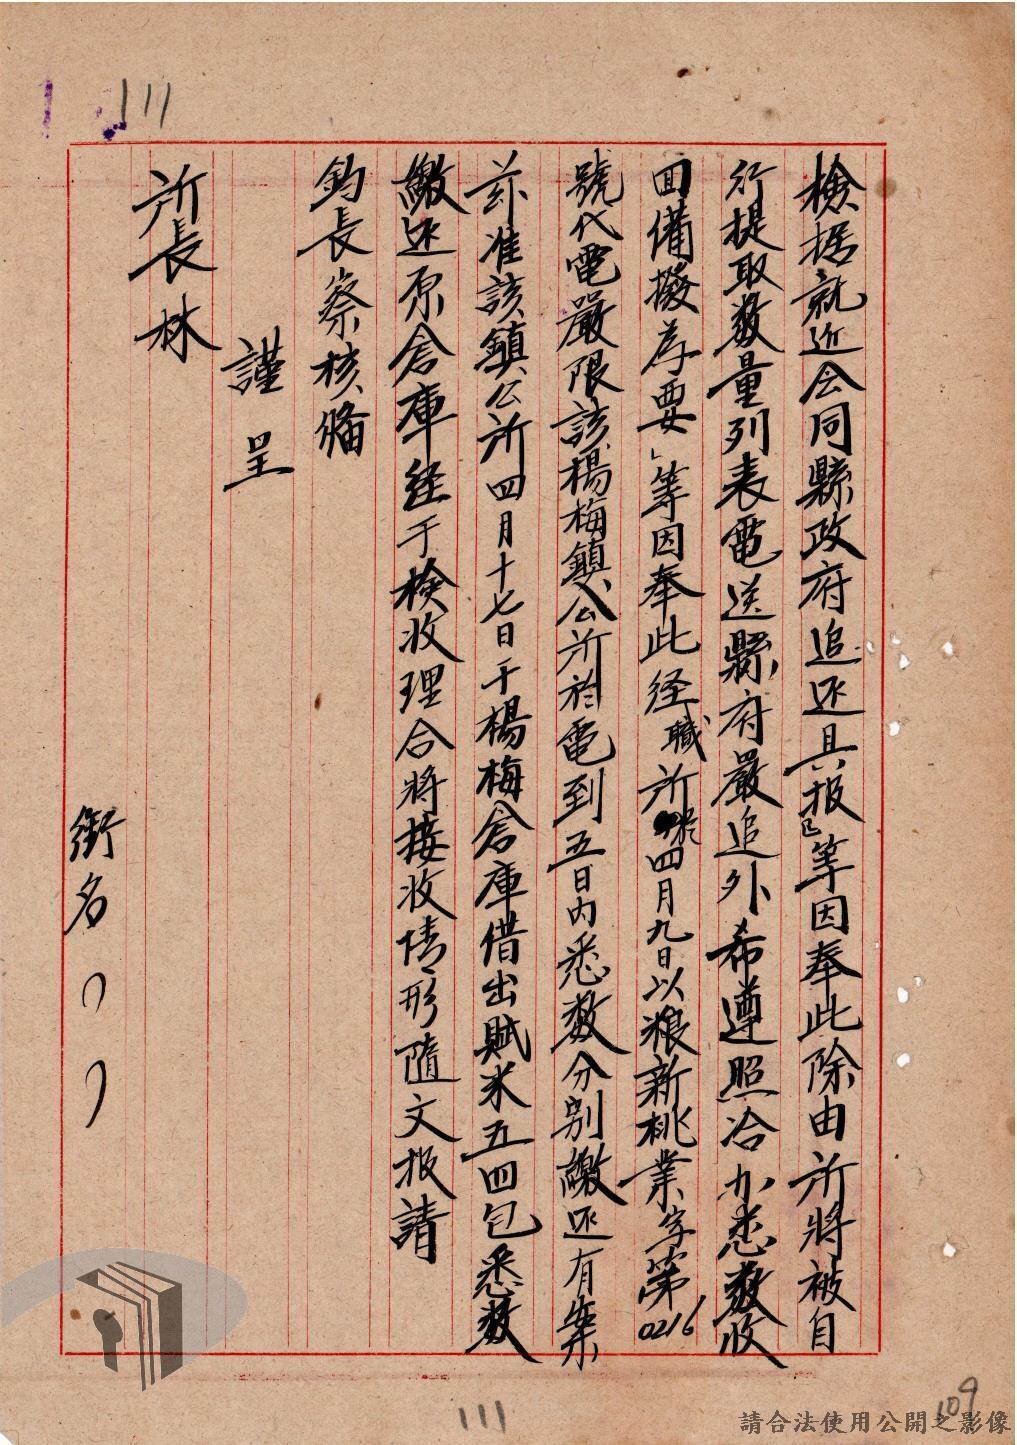 111
檢据就近会同縣政府追还具报」等因奉此除由所將被自
行提取数量列表電送縣府嚴追外希遵照洽办悉数收
回備撥為要」等因奉此经職所於四月九日以粮新桃業字第0216
號代電嚴限該楊梅鎮公所於電到五日內悉数分别繳还有案
茲准該鎮公所四月十七日于楊梅倉庫借出賦米五四包悉数
繳还原倉庫経于檢收理合將接收情形隨文报請
鈞長察核俻
謹呈
所長林
銜名
111
109
請合法使用公開之影像